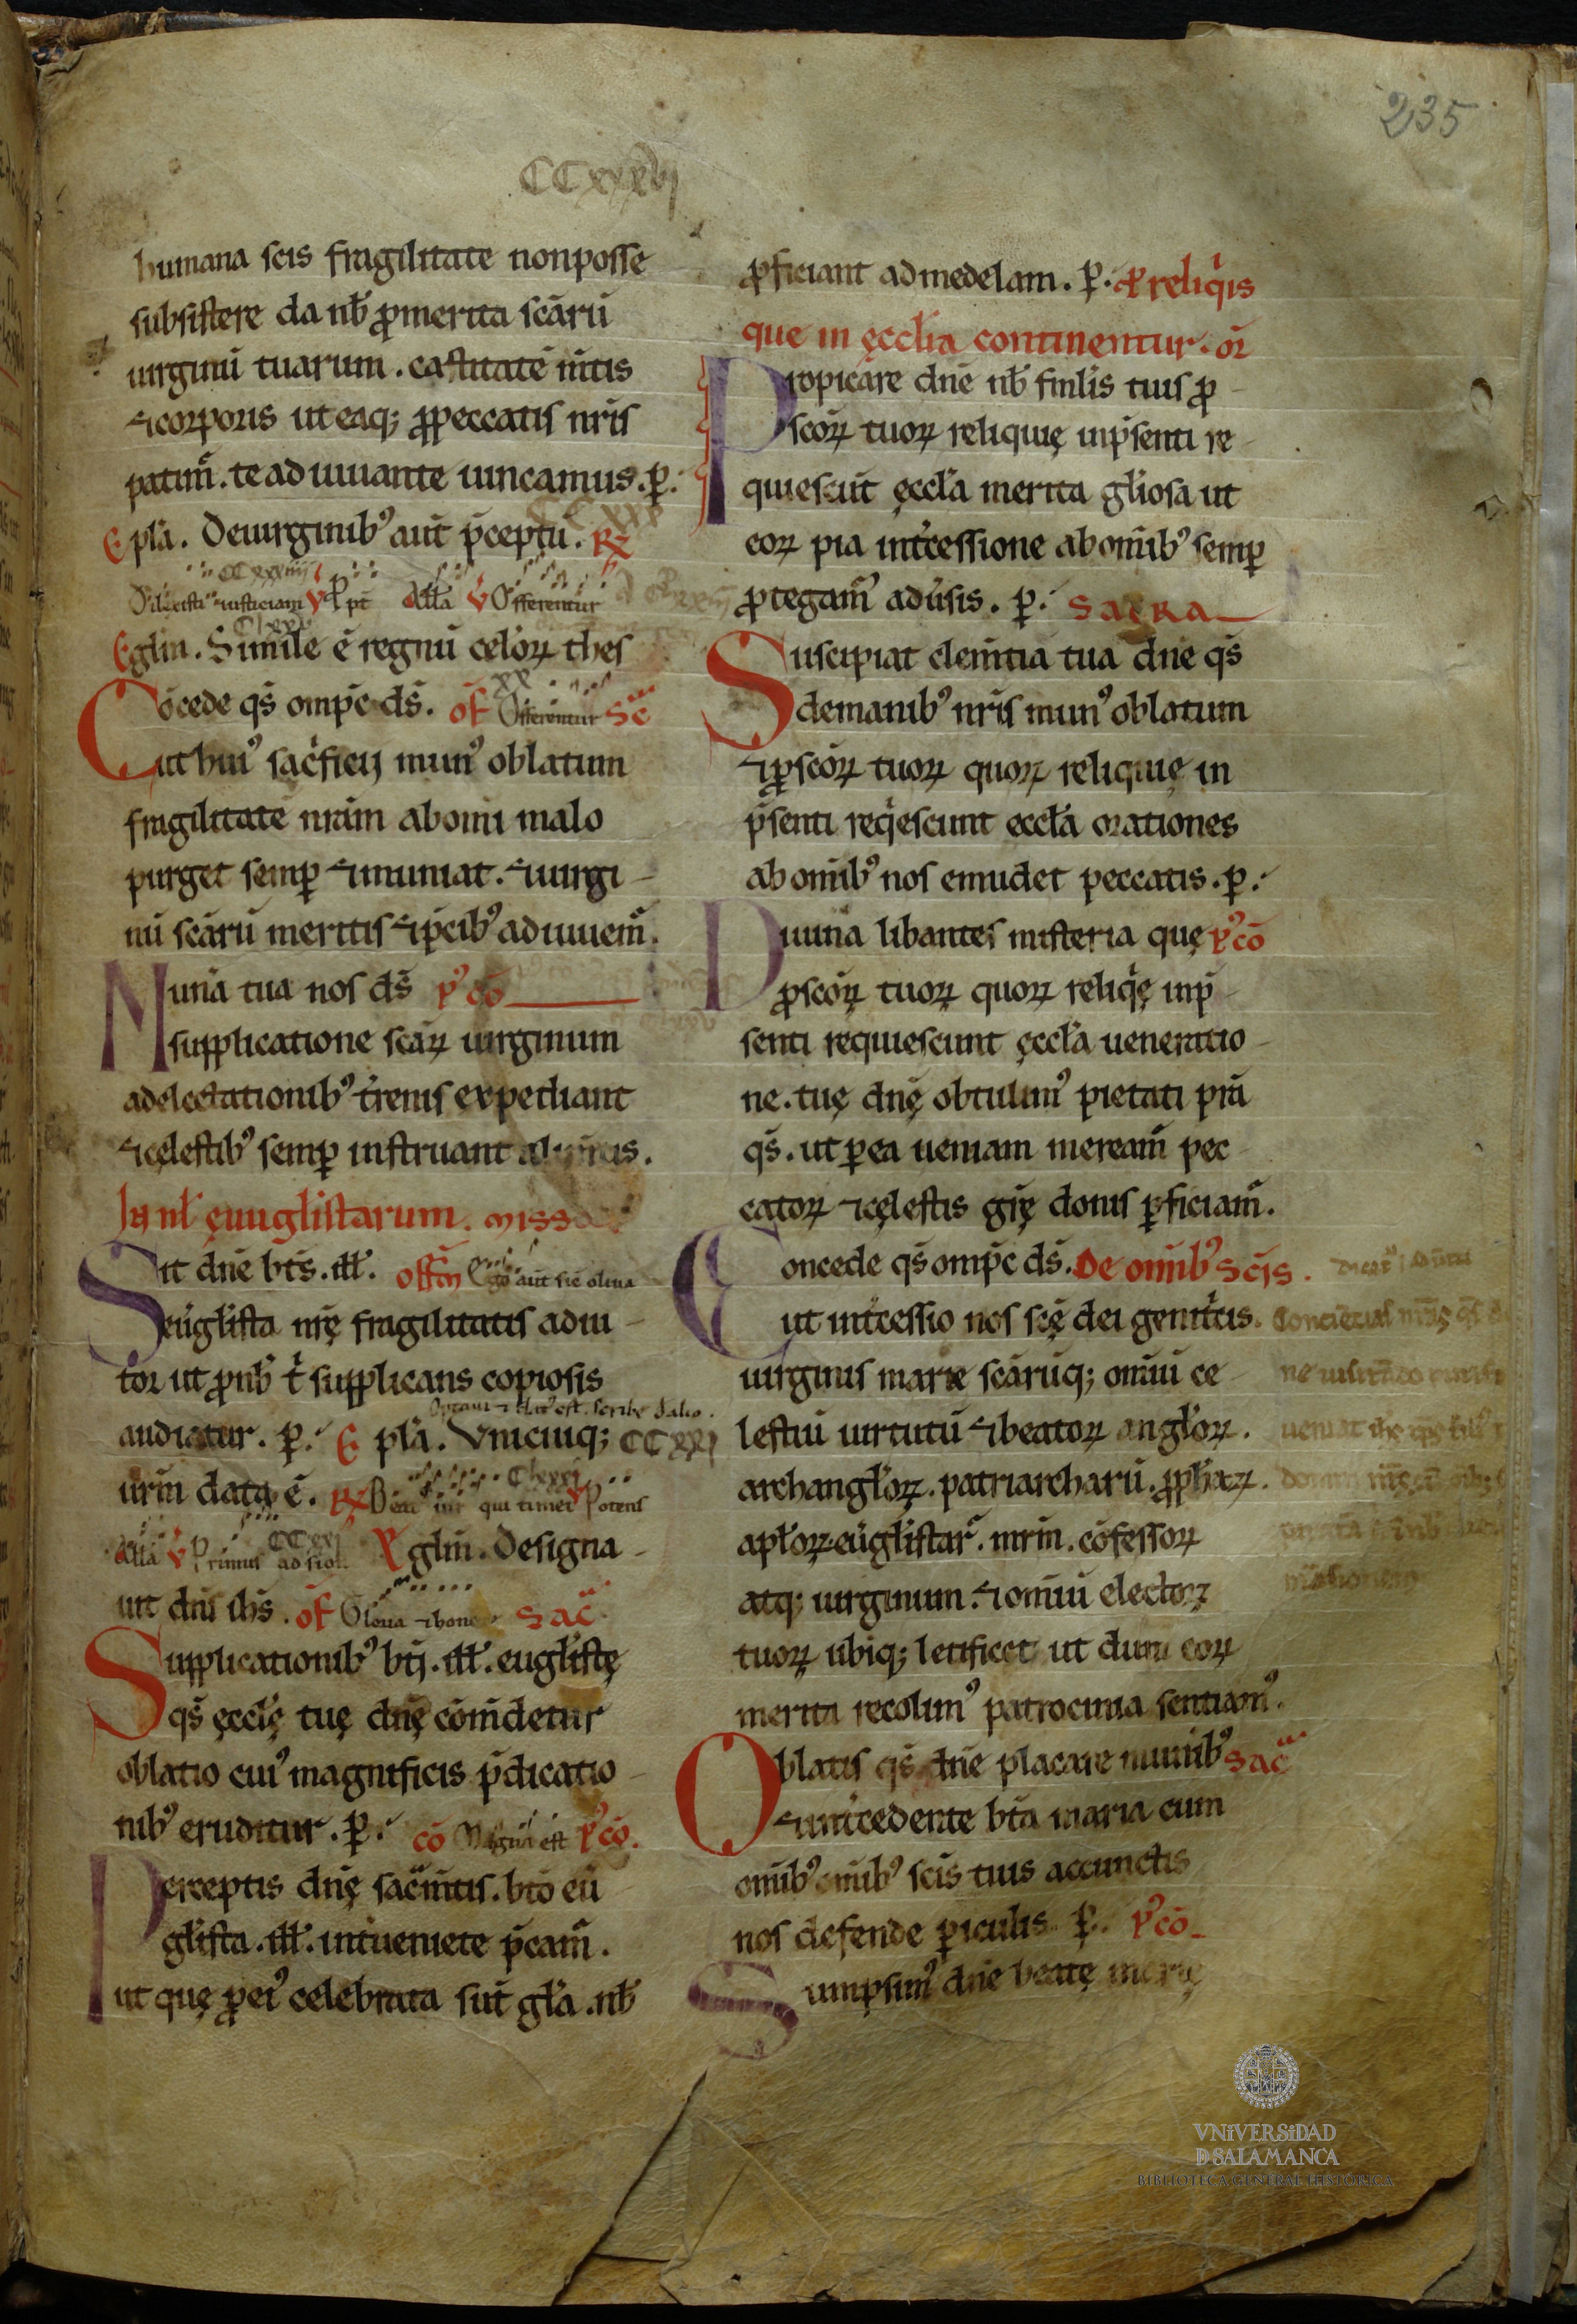 235
CCxxxvj
humana scis fragilitate non posse
subsistere da nb̄ ꝓ merita scārū
uirginū tuarum. castitatē m̄tis
⁊ corporis ut eaq; ꝓ peccatis nr̄is
patim᷑. te adiuuante uincamus. p̱.
Epłā. De uirginib⁹ aut̄ p̄ceptū. R᷒
CCxxxiiij
Dilexisti iusticiam V P pt̄ All̄a V Offerentur
Clxxv
Eglm̄. Simile ē regnū celoꝝ thes
xx
Cōcede qs̄ omp̄c ds̄. of Offerentur Sc̄
ut hui⁹ sac̓ficij mun⁹ oblatum
fragilitatē nr̄am ab om̄i malo
purget semꝑ ⁊ muniat. ⁊ uirgi-
nū scārū meritis ⁊ p̄cib⁹ adiuuem᷑.
Mun̄a tua nos ds̄ p⁹cō
supplicatione scāꝝ uirginum
a delectationib⁹ t̄renis expediant
⁊ cęlestib⁹ semꝑ instruant alim̄tis.
In nł ęuuglistarum. miss
Sit dn̄e bt̄s. ill̄. offm̄ Ego aut̄ sic oliua
euḡlista nr̄ę fragilitatis adiu-
tor ut ꝓ nb̄ t̓ supplicans copiosis
audiatur. p̱. Epłā. Vnicuiq; CCxxj
Clxxxj
ur̄m data ē. R᷒ Beat̄ uir qui timet V Potens
CCxxj
All̄a V Primus ad sion. Eglm̄. Designa-
uit dn̄s ih̄s. of Gloria ⁊ hono Sac̄
Supplicationib⁹ bt̄j. ill̄. euglistę
qs̄ ęccłę tuę dn̄ę com̄detur
oblatio cui⁹ magnificis p̄dicatio-
nib⁹ eruditur. p̱. cō Magna est p⁹cō.
Perceptis dn̄ę sac̄m̄tis. bt̄o eū
glista. ill̄. int̓ueniete p̄cam᷑.
ut quę ꝓ ei⁹ celebrata sūt głā. nb̄
ꝓficiant ad medelam. p̱. P reliq̓is
que in ęccłia continentur. or̄
Propiciāre dn̄e nb̄ fml̄is tuis ꝓ-
scōꝝ tuoꝝ reliquię in p̄senti re-
quiescūt ęccłā merita głiosa ut
eoꝝ pia int̓cessione ab om̄ib⁹ semꝑ
ꝓtegam᷑ adu̓sis. p̱. SACRA
Suscipiat clem̄tia tua dn̄e qs̄
de manib⁹ nr̄is mun⁹ oblatum
⁊ ꝑ scōꝝ tuoꝝ quoꝝ reliquię in
p̄senti req̓escunt eccłā orationes
ab om̄ib⁹ nos emudet peccatis. p̱.
Diuina libantes misteria quę p⁹cō
ꝓ scōꝝ tuoꝝ quoꝝ reliq̓ę in p̄-
senti requiescunt ęccłā ueneratio-
ne. tuę dn̄ę obtulim⁹ pietati prā
qs̄. ut ꝑ ea ueniam meream᷑ pec-
catoꝝ ⁊ cęlestis gr̄ę donis ꝓficiam᷑.
Concede qs̄ omp̄c ds̄. De om̄ib⁹ scīs.
ut int̓cessio nos scę dei genit̓cis.
uirginis marie scārūq; om̄iū ce-
lestiū uirtutū ⁊ beatoꝝ angłoꝝ.
archangłoꝝ. patriarcharū. ꝓphaꝝ.
apłoꝝ. euḡlistar̄. mr̄m. cōfessoꝝ
atq; uirginum. ⁊ om̄iū electoꝝ
tuoꝝ ubiq; letificet ut dum eoꝝ
merita recolim⁹ patrocinia sentiam⁹.
Oblatis qs̄ dn̄e placare munib⁹ Sac̄
⁊ int̓cedente bt̄a maria cum
om̄ib⁹ om̄ib⁹ scīs tuis a cunctis
nos defende periculis p̱. p⁹cō
Sumpsim⁹ dn̄e beatę marię
VNiVERSiDAD
D SALAMANCA
BIBLIOTECA GENERAL HISTÓRICA